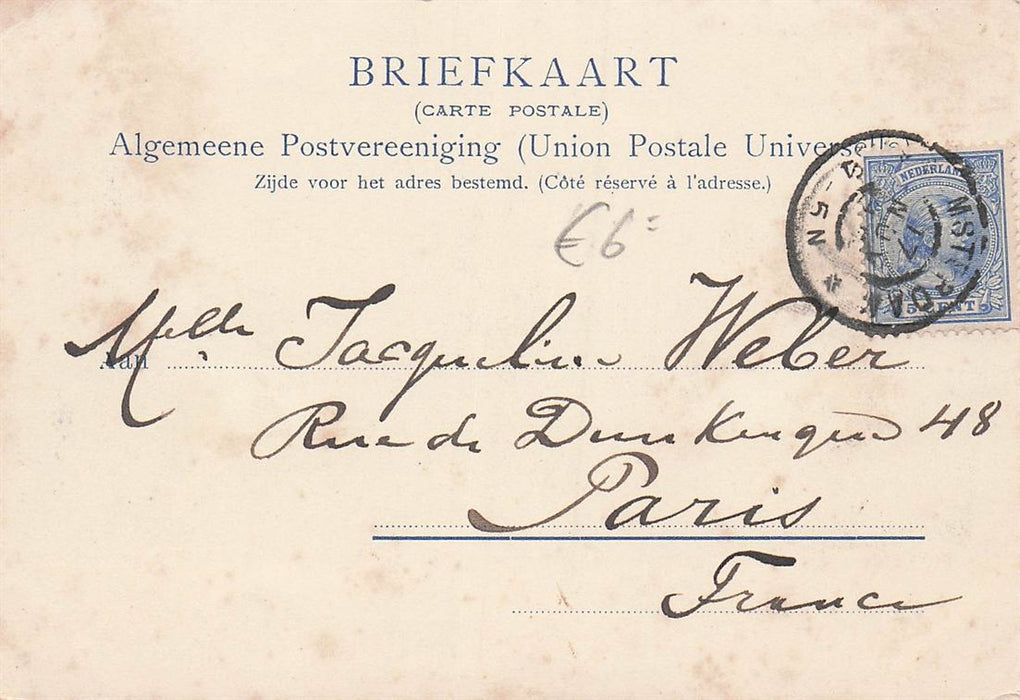 BRIEFKAART
(CARTE POSTALE)
Algemeene Postvereeniging (Union Postale Universelle)
Zijde voor het adres bestemd. (Côté réservé à l'adresse.)
NEDERLAND
5 CENT
5 N
€ 6-
Aan Melle Jacqueline Weber
Rue de Dunkerque 48
Paris
France